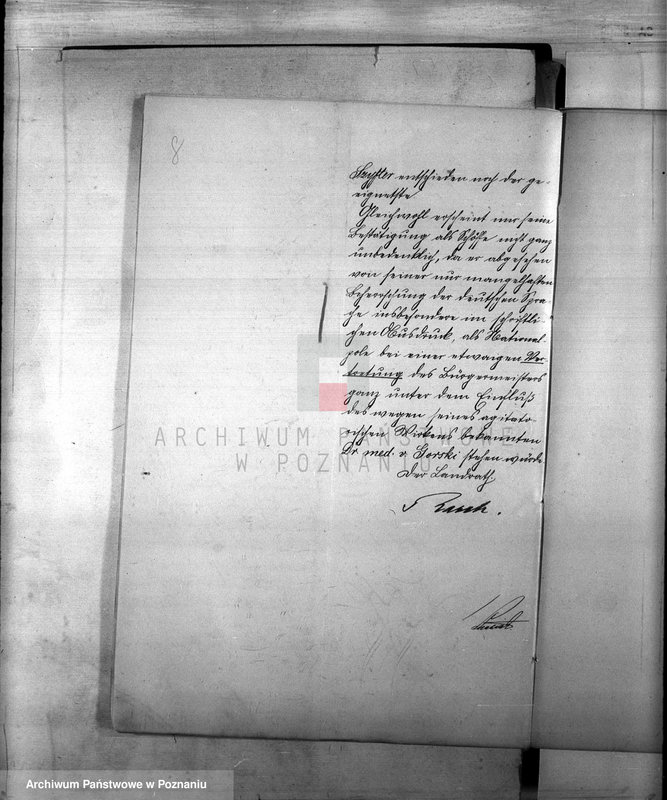 8
entschieden noch der ge-
eignetste
Gleichwohl erscheint mir seine
Bestätigung als Schöffe nicht ganz
unbedenklich, da er abgesehen
von seiner nur mangelhaften
Beherrschung der deutschen Spra-
che insbesondere im schriftli-
chen Ausdruck, als National-
pole bei einer etwaigen Ver-
tretung des Bürgermeisters
ganz unter dem Einfluß
des wegen seines agitato-
rischen Wirkens bekannten
Dr. med. v. Gorski stehen würde.
Der Landrath.
ARCHIWUM PAŃSTWOWE
W POZNANIU
Archiwum Państwowe w Poznaniu